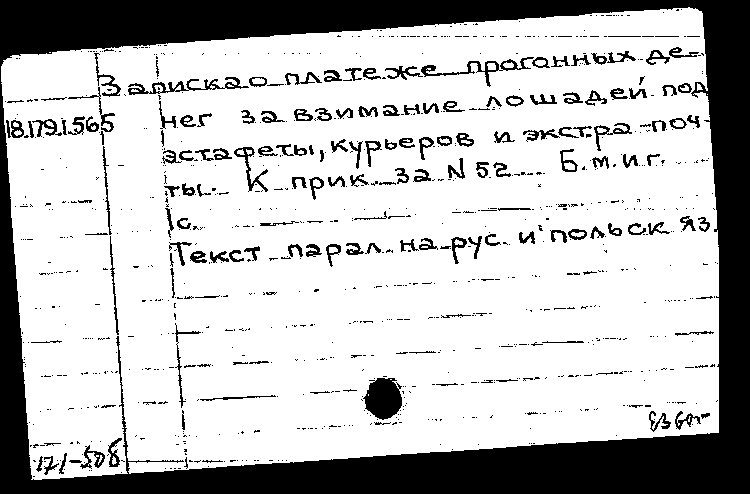 Записка о платеже прогонных де-
18.179.1.565 нег за взимание лошадей под
эстафеты, курьеров и экстра-поч-
ты. К прик. за N 52 Б.м.и г.
1с.
Текст парал. на рус. и польск яз.
171-508